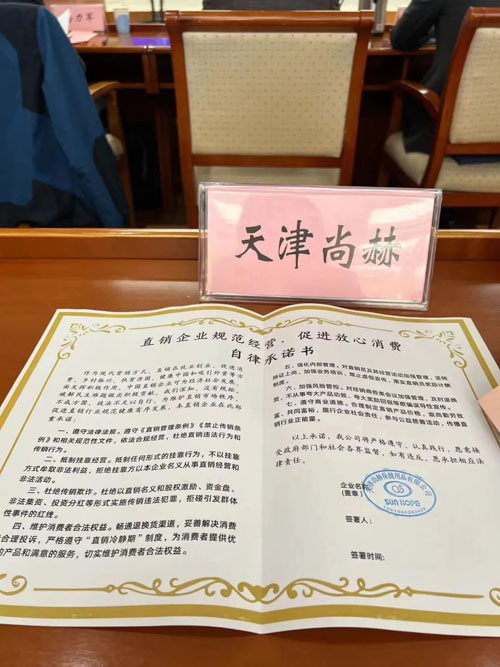 天津尚赫
直销企业规范经营·促进放心消费
自律承诺书
作为现代营销方式，直销在就业创业、促进消
费、乡村振兴、扶贫济困、健康中国和吸引外资等方
面发挥积极作用，中国直销企业可为经济社会发展、
破解民生难题做出积极贡献。我们深知，没有规矩、
不成方圆，规法不足以自行。为维护直销市场秩序，
促进直销行业规范健康有序发展，本直销企业在此郑
重承诺：
一、遵守法律法院。遵守《直销管理条例》《禁止传销条
例》和相关规范性文件，依法合规经营，杜绝直销违法行为和
传销行为。
二、抵制挂靠经营。抵制任何形式的挂靠行为，不以挂靠
方式牟取非法利益，拒绝挂靠方以本企业名义从事直销经营和
非法活动。
三、杜绝传销欺诈。杜绝以直销名义和股权激励、资金盘、
非法集资、投资分红等形式实施传销违法犯罪，拒碰引发群体
性事件的红线。
四、维护消费者合法权益。畅通退换货渠道，妥善解决消费
合理投诉，严格遵守“直销冷静期”制度，为消费者提供优
的产品和满意的服务，切实维护消费者合法权益。
五、强化内部管理。对直销员及其经营活动加强管理，坚持
持证上岗，加强业务培训，禁止虚假宣传，落实直销员奖励计酬
制度。
六、加强风险管控。对经销商等各类会议加强管理，及时报
不从事夸大产品功效、夸大奖励回报等欺骗误导性宣传。
七、遵守商业道德。合理制定直销产品价格，宣传勤劳致
富、共同富裕，履行企业社会责任，参与公益慈善活动，传播直
销行业正能量。
以上承诺，我公司将严格遵守，认真践行，愿意接
受政府部门和社会各界监督，如有违反，愿承担相应法
律责任。
企业名称
（盖章）
SUN HOPE
签署人：
签署时间：